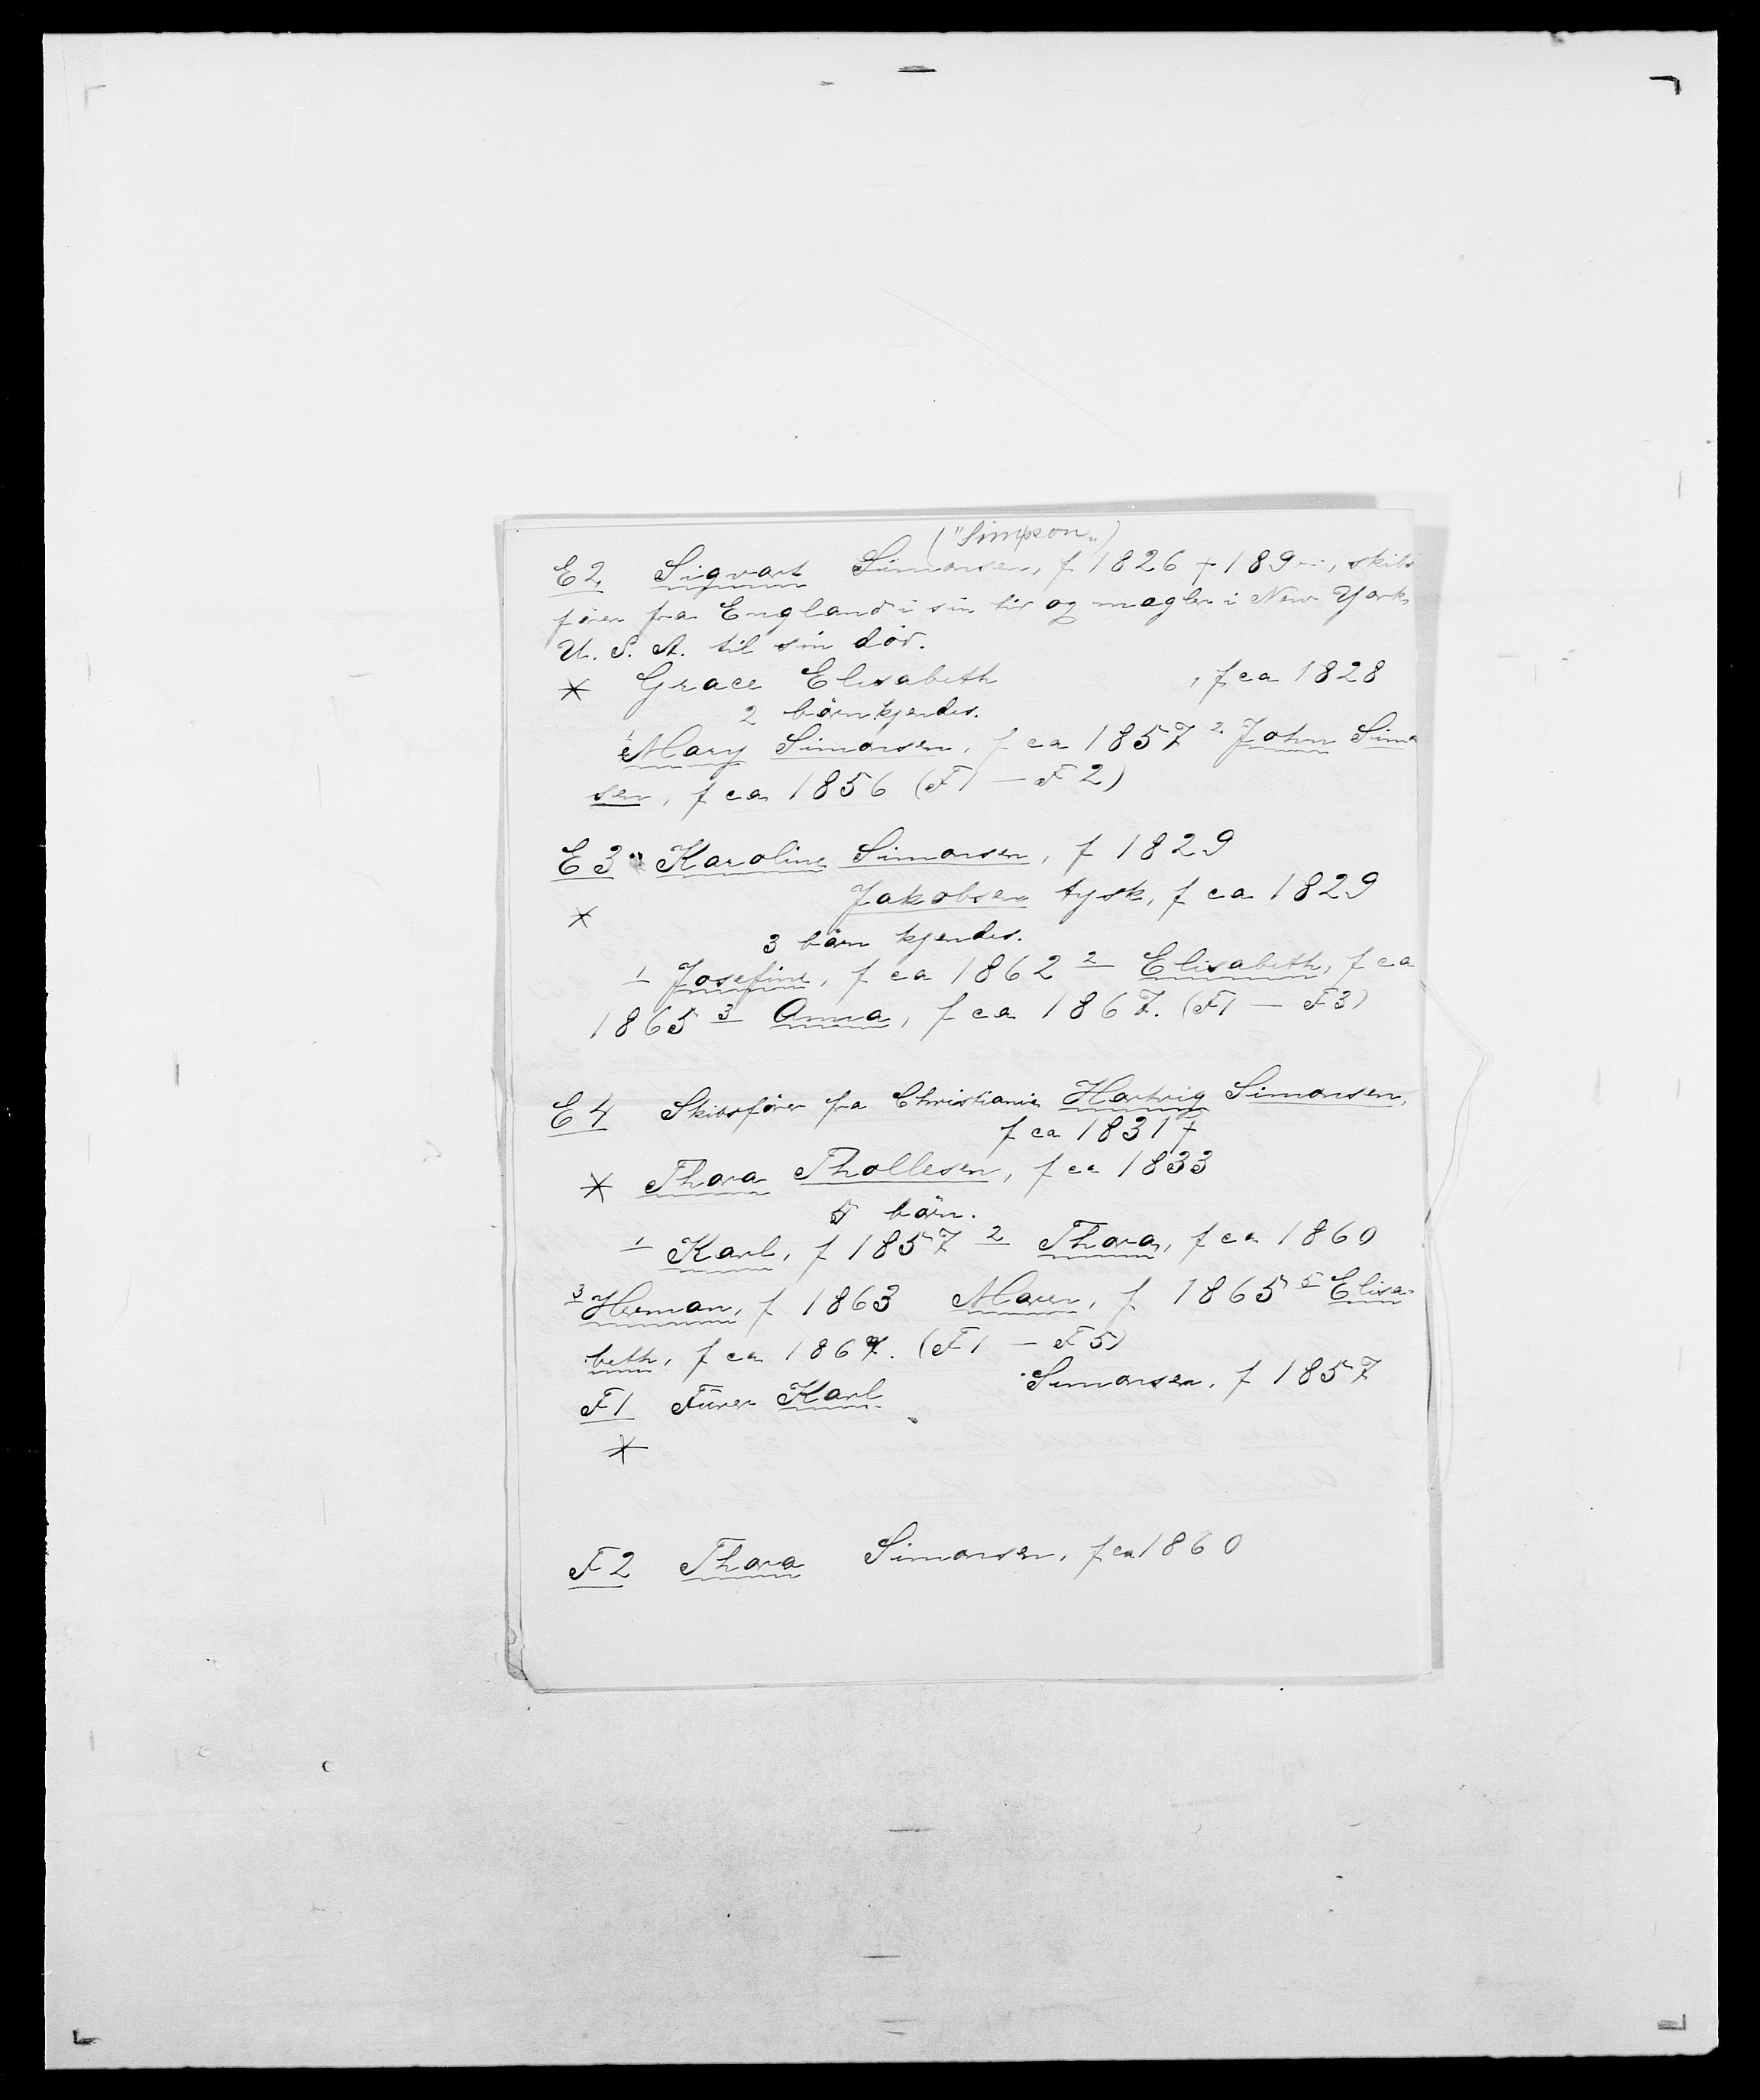 ("Simpson")
E2. Sigvart Simonsen, f 1826 + 189--, skibs
förer fra England i sin tid og megler i New York,
U. S. A. til sin död.
* Grace Elisabeth , f ca 1828
2 börn kjendes.
1 Mary Simonsen, f ca 1857 2 John Simon
sen, f ca 1856 (F1 — F2)
E3. Karoline Simonsen, f 1829
* Jakobsen tysk, f ca 1829
3 börn kjendes.
1 Josefine, f ca 1862 2 Elisabeth, f ca
1865 3 Anna, f ca 1867. (F1 — F3)
E4 Skibsförer fra Christiania Hartvig Simonsen,
f ca 1831 +
* Thora Thollesen, f ca 1833
5 börn.
1 Karl, f 1857 2 Thora, f ca 1860
3 Herman, f 1863 Maren, f 1865 5 Elisa-
beth, f ca 1867. (F1 — F5)
F1 Fürer Karl Simonsen, f 1857
*
F2 Thora Simonsen, f ca 1860